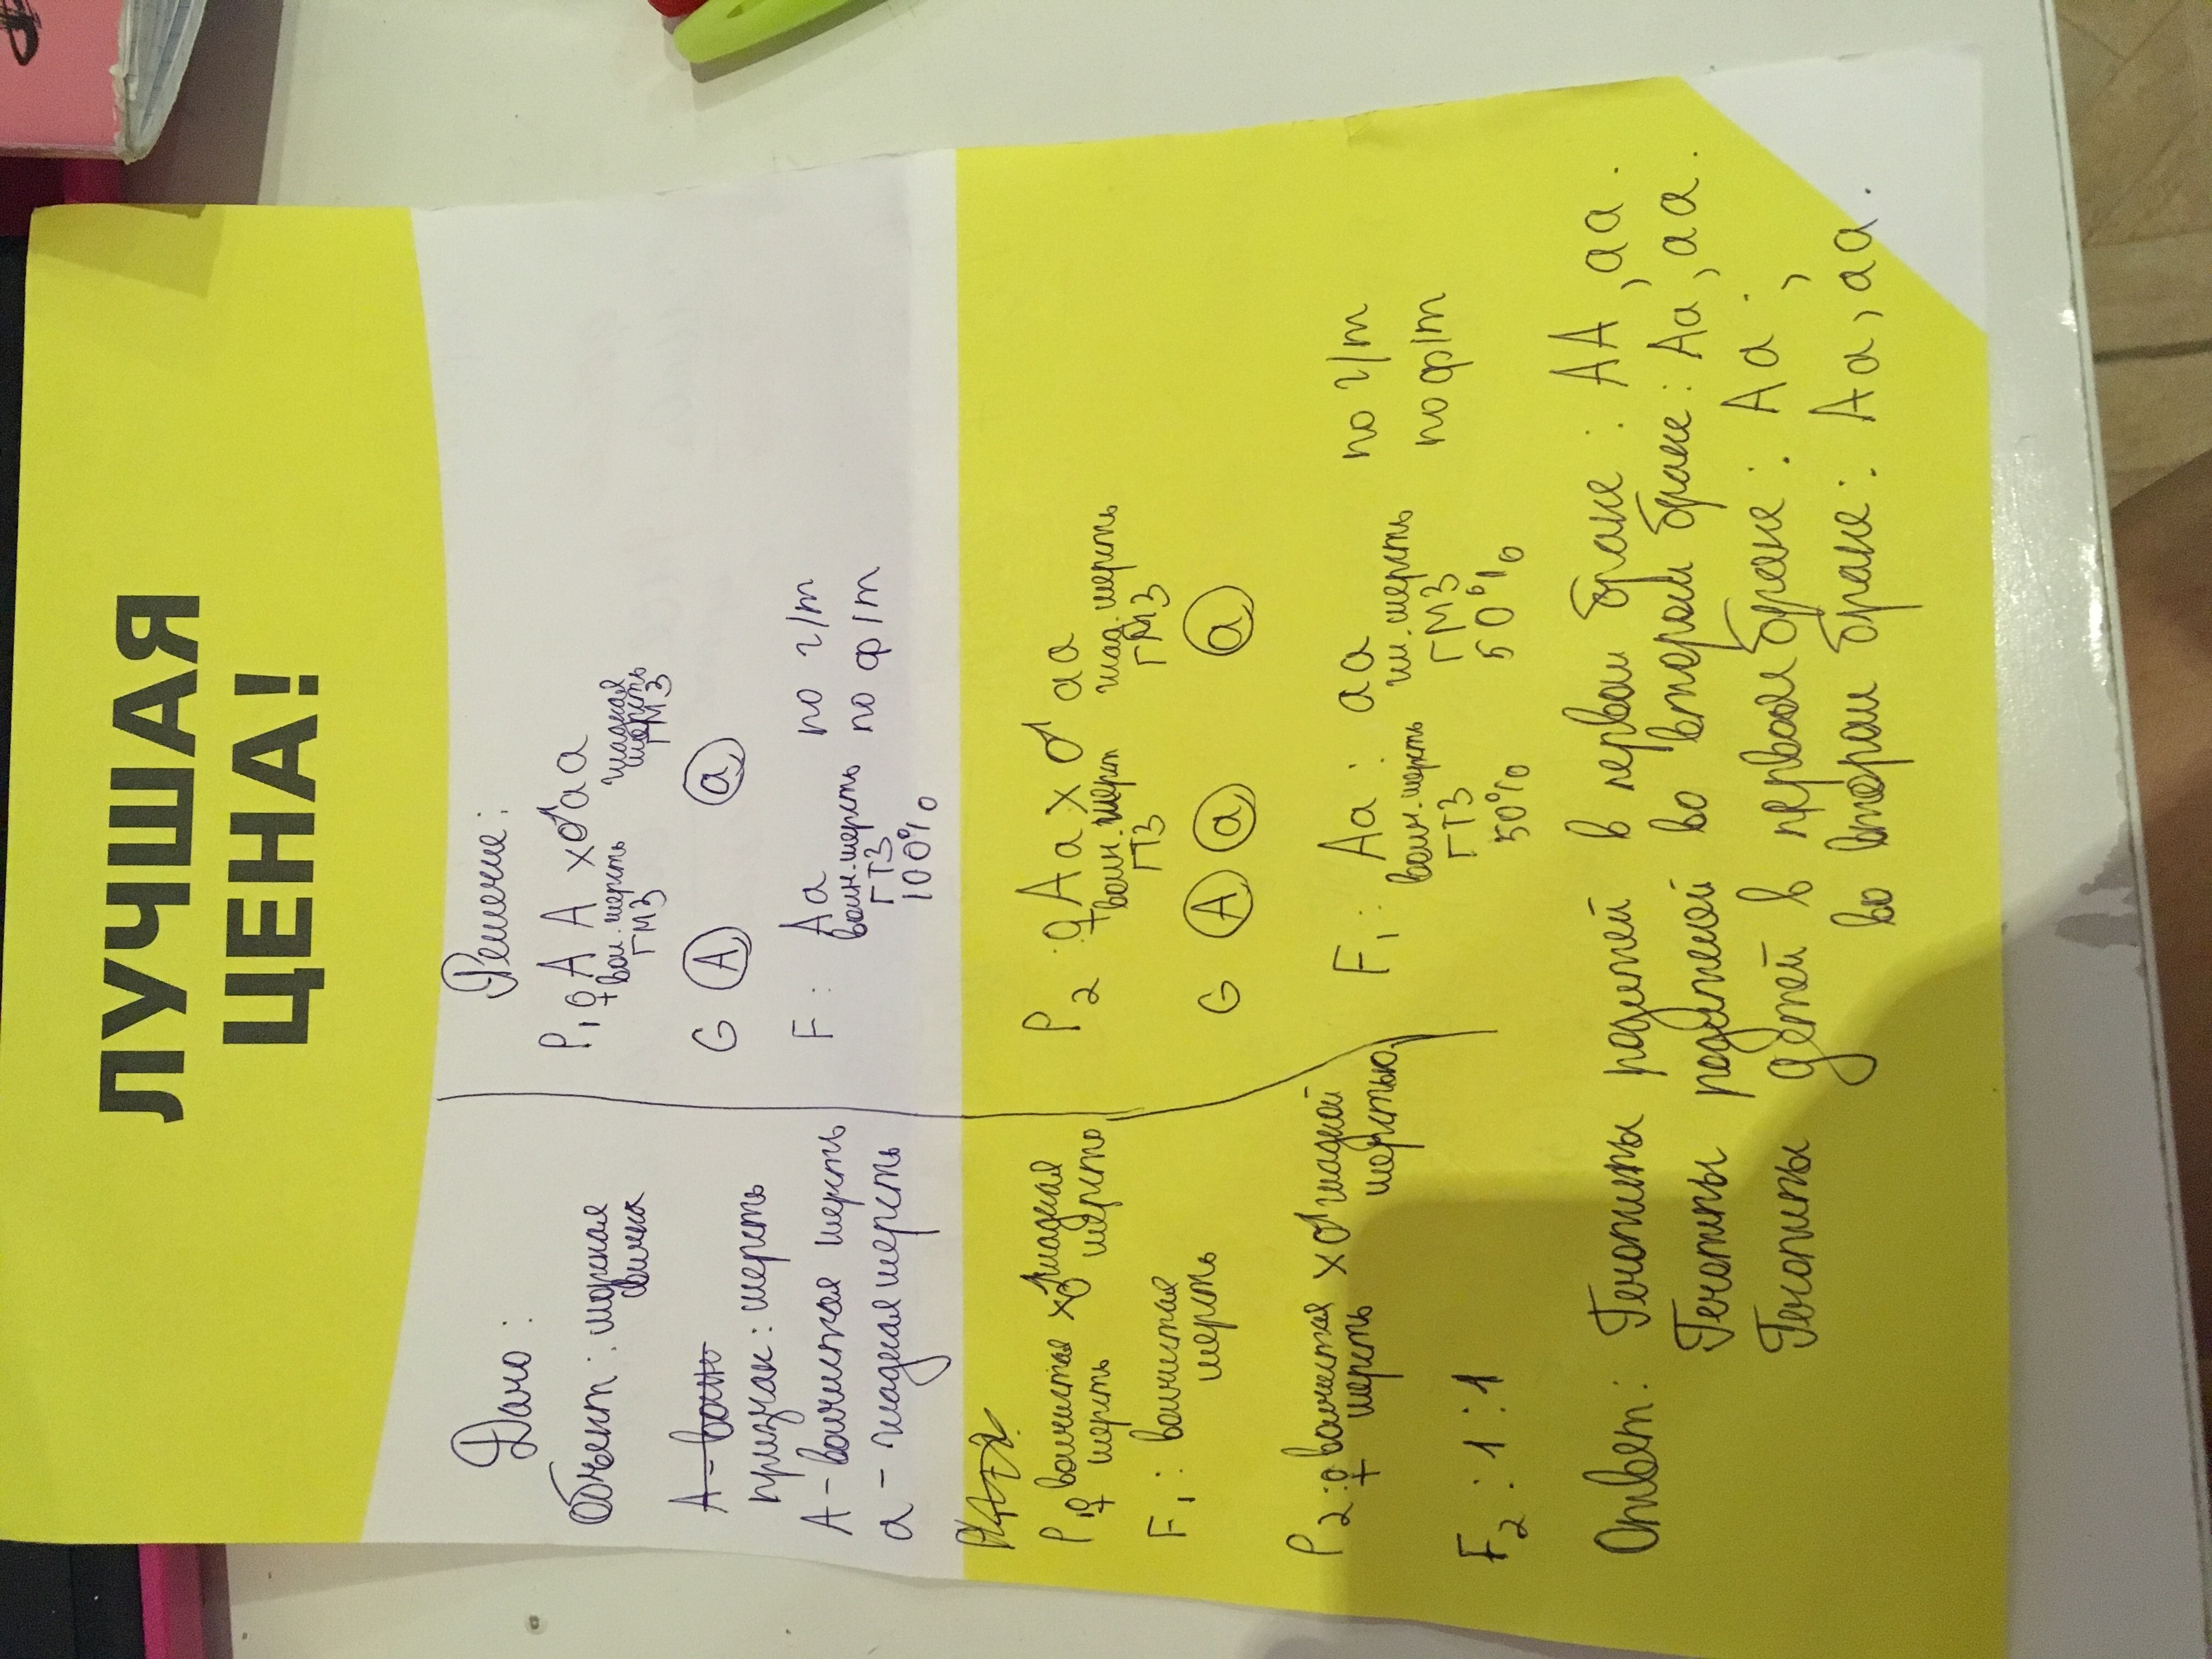 ЛУЧШАЯ
ЦЕНА!
Дано:
Объект: морская
свинка
А - волн
признак: шерсть
А - волнистая шерсть
а - гладкая шерсть
P₁ ♀ волнистая х ♂ гладкая
шерсть шерсть
F₁: волнистая
шерсть
P₂: ♀ волнистая х ♂ гладкой
шерсть шерстью
F₂: 1:1
Решение:
P₁ ♀ АА х ♂ аа
вол. шерсть гладкая
ГМЗ шерсть
ГМЗ
G А а
F: Аа по г/т
волн. шерсть по ф/т
ГТЗ
100%
P₂: ♀ Аа х ♂ аа
волн. шерст глад. шерсть
ГТЗ ГМЗ
G А а а
F₁: Аа : аа по г/т
волн. шерсть гл. шерсть по ф/т
ГТЗ ГМЗ
50% 50%
Ответ: Генотипы родителей в первом браке: АА, аа.
Генотипы родителей во втором браке: Аа, аа.
Генотипы детей в первом браке: Аа;
во втором браке: Аа, аа.